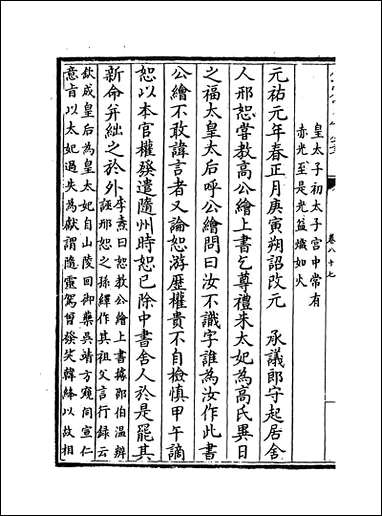 皇太子初太子宫中常有
赤光至是光益熾如火
元祐元年春正月庚寅朔詔改元　承議郎守起居舍
人邢恕嘗教高公繪上書乞尊禮朱太妃為高氏異日
之福太皇太后呼公繪問曰汝不識字誰為汝作此書
公繪不敢諱言者又論恕游歷權貴不自檢慎甲午謫
恕以本官權發遣隨州時恕已除中書舍人於是罷其
新命并絀之於外
李燾曰恕教公繪上書據邵伯温辨
誣邢恕之孫繹作其祖父言行録云
欽成皇后為皇太妃自山陵回御藥吳靖方窺伺宣仁
意㫖以太妃過失為獻謂隨靈駕曾發笑韓絳以故相
卷八十七